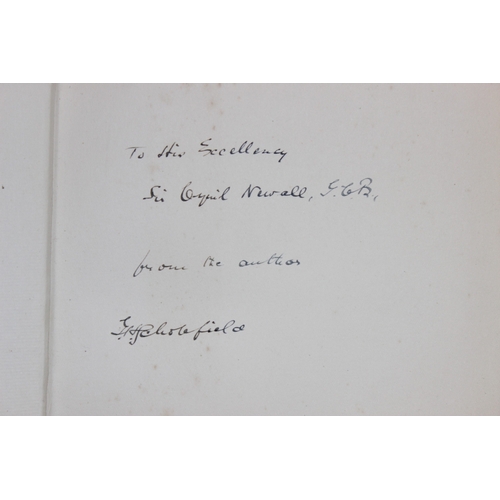 To His Excellency
Sir Cyril Newall, G.C.B.,
from the author
G.H. Scholefield